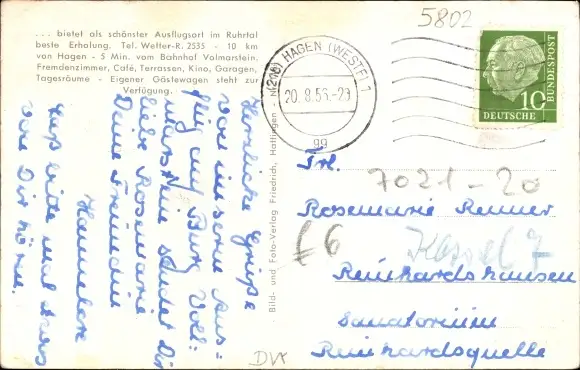 ... bietet als schönster Ausflugsort im Ruhrtal
beste Erholung. Tel. Wetter-R. 2535 - 10 km
von Hagen - 5 Min. vom Bahnhof Volmarstein.
Fremdenzimmer, Café, Terrassen, Kino, Garagen,
Tagesräume - Eigener Gästewagen steht zur
Verfügung.
Herzliche Grüße
von unserm Aus=
flug auf Burg Voll=
marstein sendet Dir
liebe Rosemarie
Deine Freundin
Hannelore
Laß bitte mal etwas
von Dir hören.
Bild- und Foto-Verlag Friedrich, Hattingen - N
5802
(21b) HAGEN (WESTF) 1
20.8.56.-23
gg
10
DEUTSCHE
BUNDESPOST
Frl.
7021-20
Rosemarie Renner
£6
Kassel 7
Reinhardshausen
Sanatorium
Reinhardsquelle
DVK